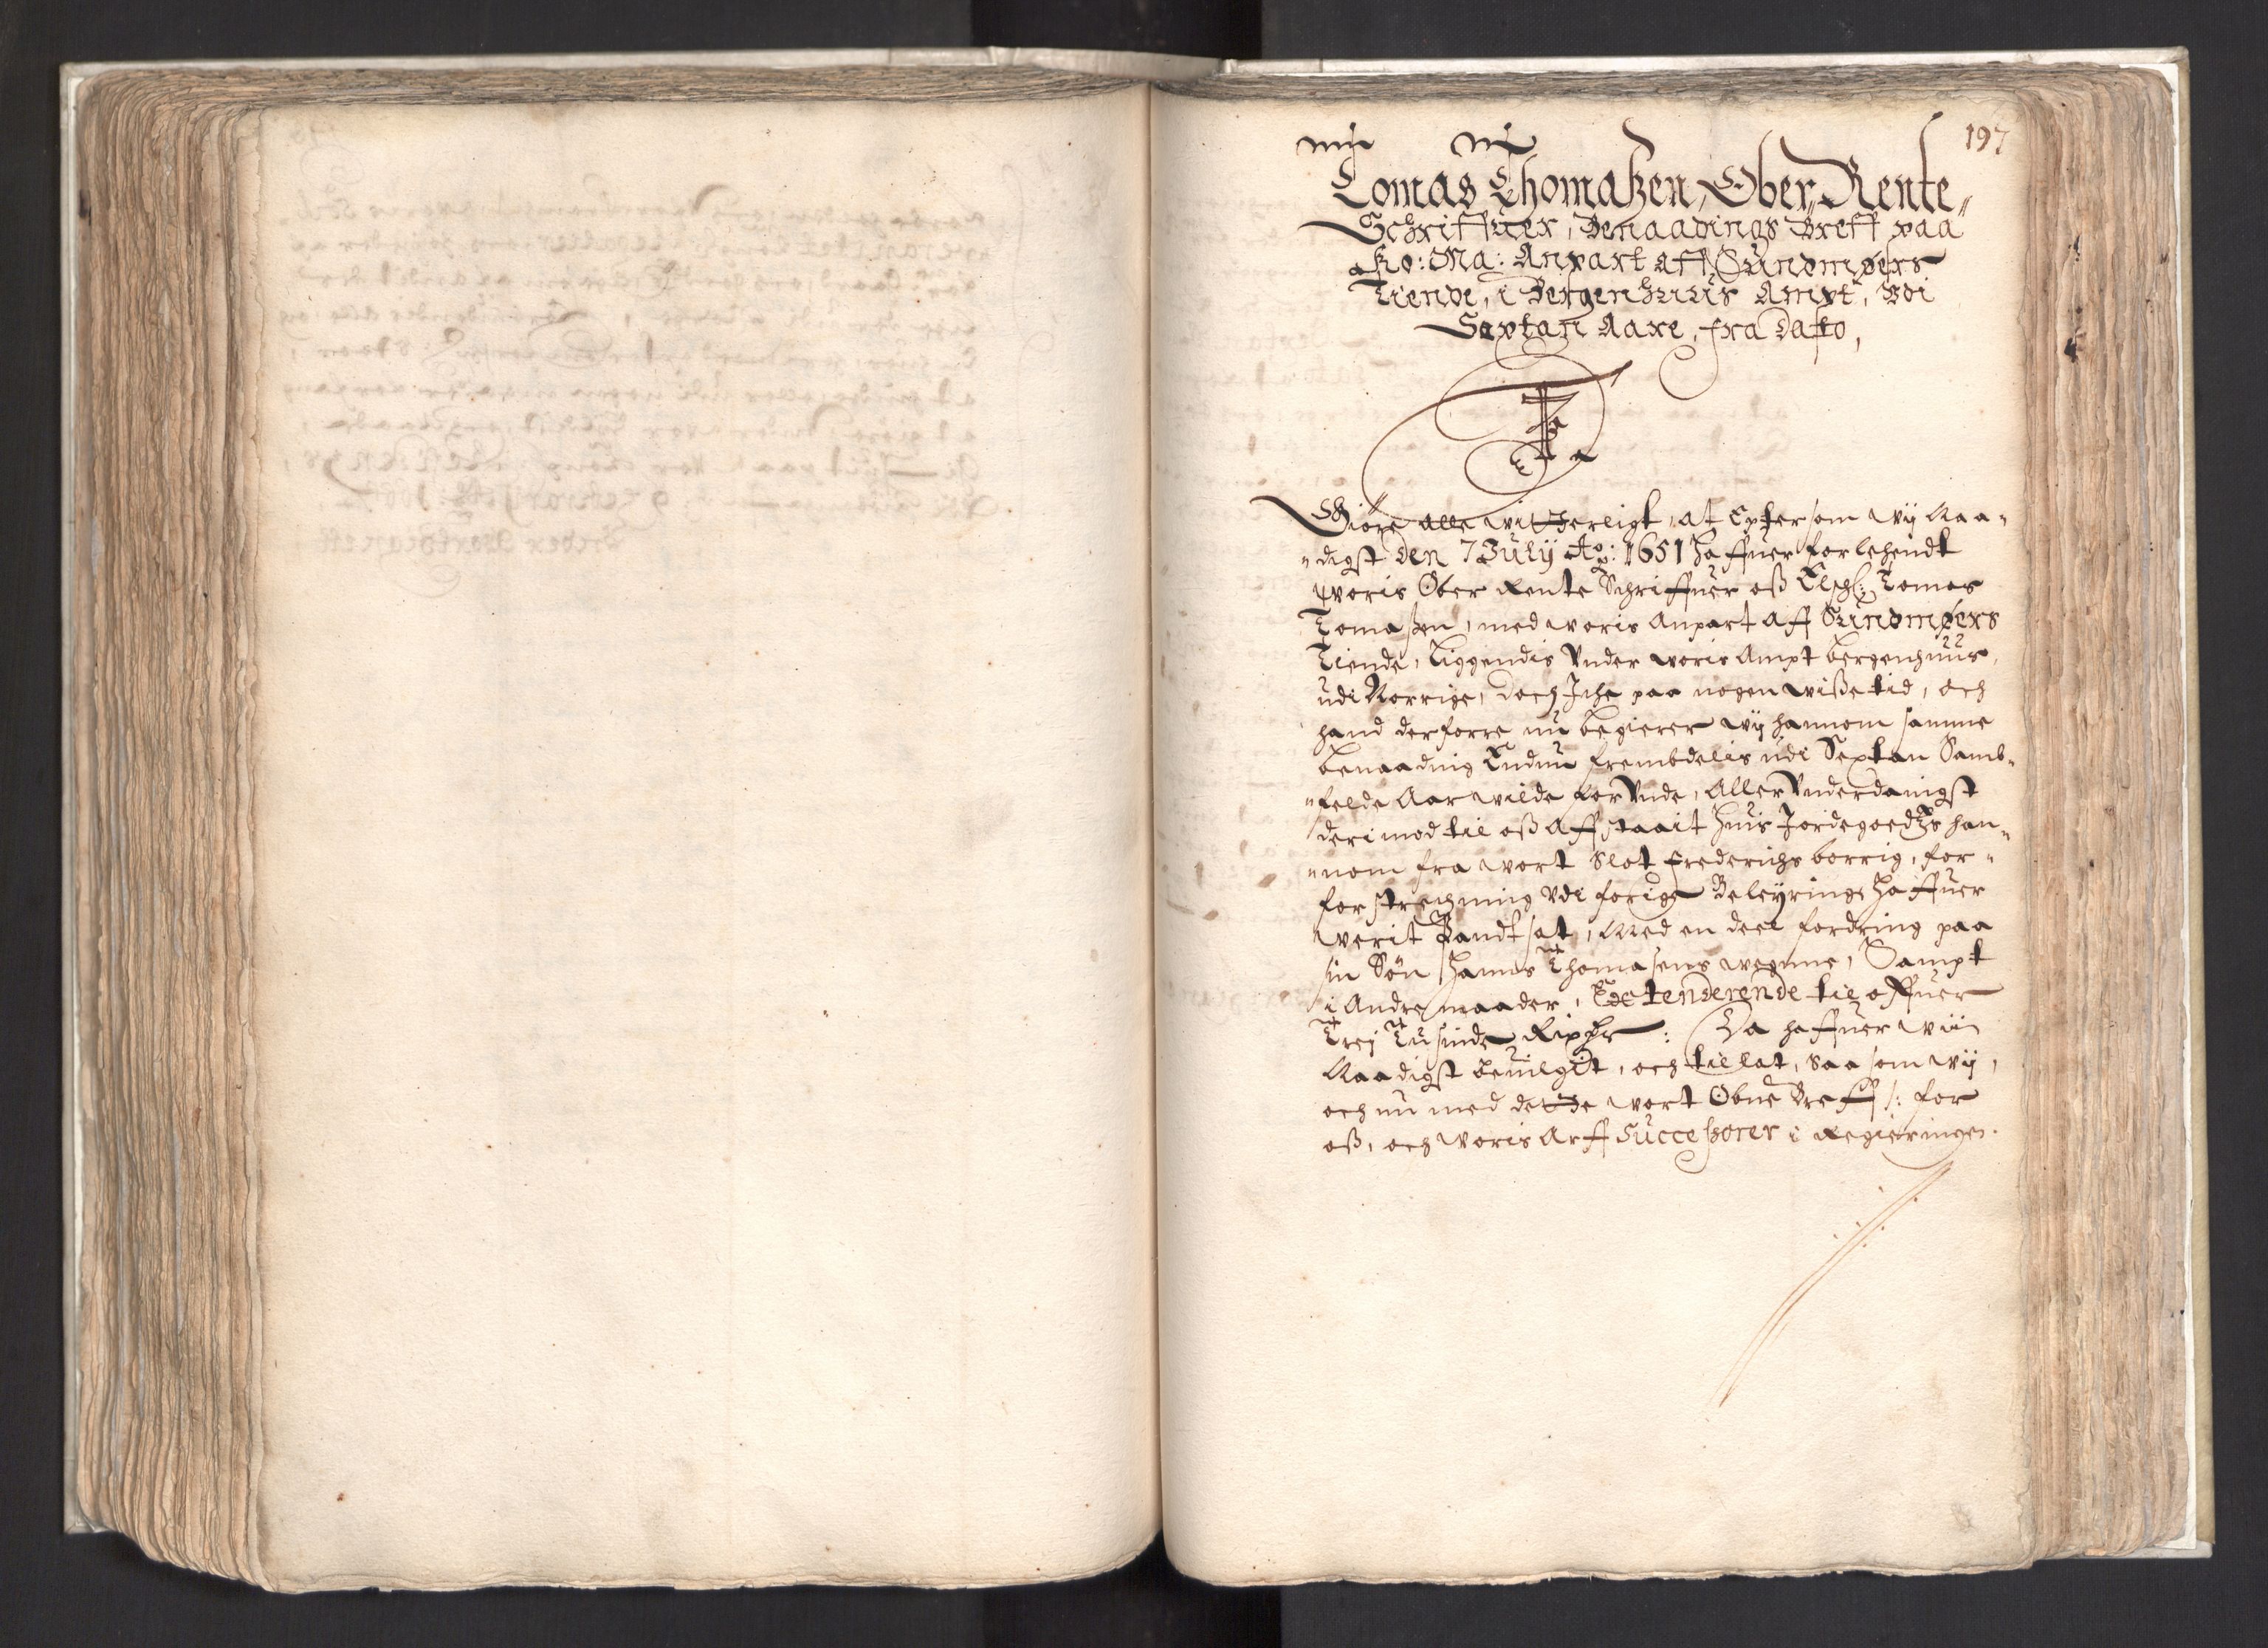 197
Tomas Thomaßen, Ober, Rente„
Schriffuer, Benaadings Breff paa
Ko: Ma: Anpart aff Sundmøers
Tiende, i Bergenhuus Ampt, Vdi
Sextan Aare, fra Dato,
Giøre alle witterligt, at Epter som wij Naa„
„digst den 7 Julij Ao: 1651 haffuer forlehendt
woris Ober Rente Schriffuer oß Elschl: Tomas
Tomaßen, med woris Anpart aff Sundmøers
Tiende, liggendis Vnder woris Ampt Bergenhuus,
udi Norrige, doch Iche paa nogen wiße tid, och
hand derforre nu begierer wij hannom samme
benaading Endnu frembdelis udi Sextan Samb„
„felde Aar wilde for Vnde, Aller Vnderdanigst
derimod til oß Affstaait huis Jordegoedtzs han„
„nom fra wort Slot Frederichs borrig, for„
forstrechning Vdi forige Beleyring haffuer
werit Pandtsat, Med en deel fordring paa
sin Søn Hannes Thomasens wegnne, Sampt
i Andre maader, Extenderende til offuer
Trej Tusinde Rixdlr: Da haffuer wii
Naadigst beuilget, och tillat, saa som wij,
och nu med dette wort Obne Breff /: for
oß, och woris Arff Successorer i Regieringen.